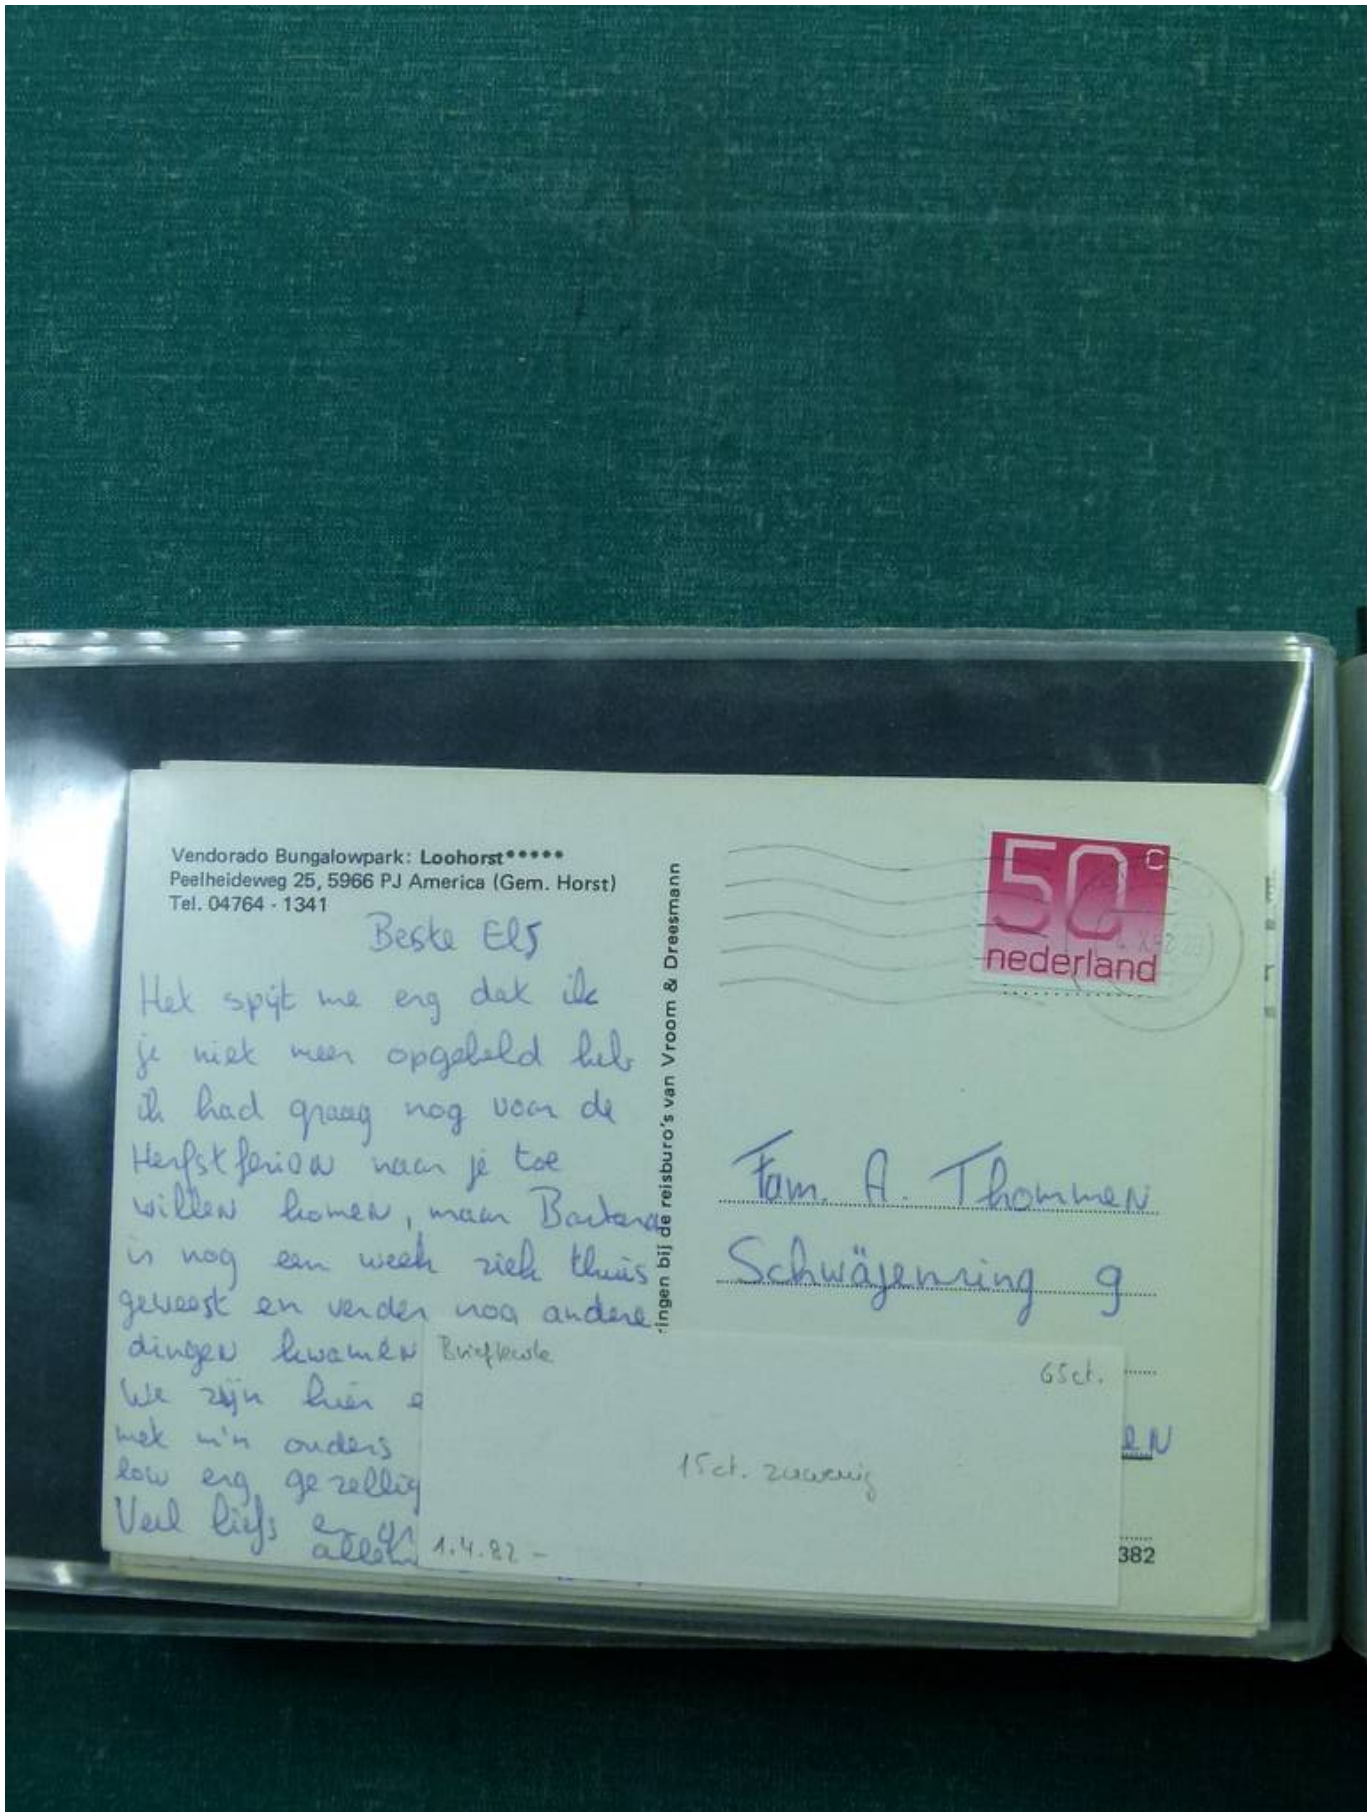 Vendorado Bungalowpark: Loohorst*****
Peelheideweg 25, 5966 PJ America (Gem. Horst)
Tel. 04764 - 1341
Beste Els
Het spijt me erg dat ik
je niet meer opgebeld heb
ik had graag nog voor de
Herfstferien naar je toe
willen komen, maar Barbara
is nog een week ziek thuis
geweest en verder nog andere
dingen kwamen
We zijn hier
met m'n ouders
low erg gezellig
Veel liefs
ringen bij de reisburo's van Vroom & Dreesmann
50 c
nederland
Fam. A. Thommen
Schwäjenring 9
en
382
Briefkarte
65ct.
15ct. zuwenig
1.4.82 -